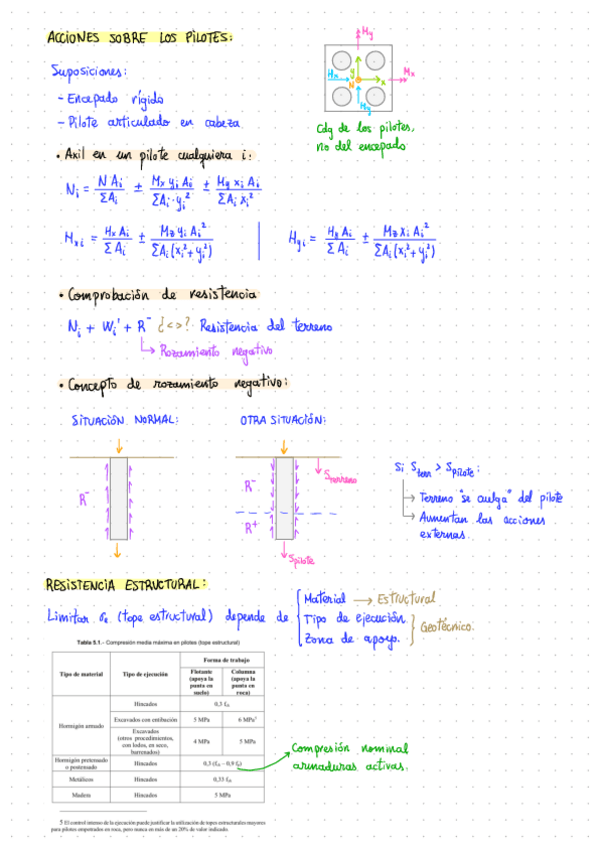 ACCIONES SOBRE LOS PILOTES:
Suposiciones:
- Encepado rígido
- Pilote articulado en cabeza
My
Hx
y
N
x
Mx
Hy
Cdg de los pilotes,
no del encepado
• Axil en un pilote cualquiera i:
Ni = N Ai / ΣAi ± Mx yi Ai / ΣAi·yi² ± My xi Ai / ΣAi xi²
Hxi = Hx Ai / ΣAi ± Mz yi Ai² / ΣAi(xi²+yi²) | Hyi = Hy Ai / ΣAi ± Mz xi Ai² / ΣAi(xi²+yi²)
• Comprobación de resistencia
Ni + Wi' + R⁻ ¿<>? Resistencia del terreno
↳ Rozamiento negativo
• Concepto de rozamiento negativo:
SITUACIÓN NORMAL:
OTRA SITUACIÓN:
R⁻
R⁻
R⁺
Sterreno
Spilote
Si Sterr > Spilote:
→ Terreno "se cuelga" del pilote
→ Aumentan las acciones
externas.
RESISTENCIA ESTRUCTURAL:
Limitar σe (tope estructural) depende de
Material → Estructural
Tipo de ejecución
Zona de apoyo.
Geotécnico.
Tabla 5.1.- Compresión media máxima en pilotes (tope estructural)
Tipo de material
Tipo de ejecución
Forma de trabajo
Flotante (apoya la punta en suelo)
Columna (apoya la punta en roca)
Hormigón armado
Hincados
0,3 fck
Excavados con entibación
5 MPa
6 MPa⁵
Excavados (otros procedimientos, con lodos, en seco, barrenados)
4 MPa
5 MPa
Hormigón pretensado o postensado
Hincados
0,3 (fck – 0,9 fp)
Metálicos
Hincados
0,33 fyk
Madera
Hincados
5 MPa
Compresión nominal
armaduras activas.
5 El control intenso de la ejecución puede justificar la utilización de topes estructurales mayores
para pilotes empotrados en roca, pero nunca en más de un 20% de valor indicado.